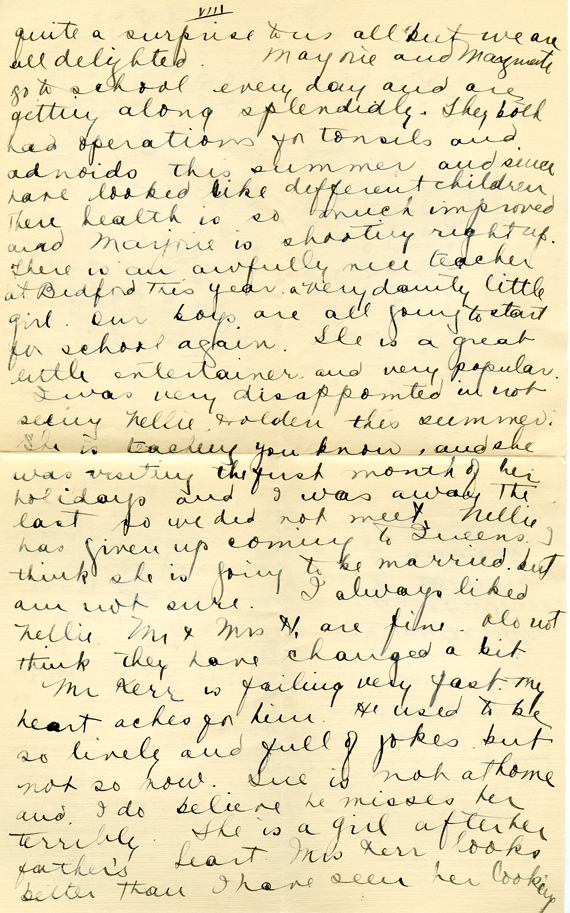 VIII
quite a surprise to us all but we are
all delighted. Marjorie and Marguerite
go to school every day and are
getting along splendidly. They both
had operations for tonsils and
adnoids this summer and since
have looked like different children
There health is so much improved
and Marjorie is shooting right up.
There is an awfully nice teacher
at Bedford this year. a very dainty little
girl. Our boys are all going to start
for school again. She is a great
little entertainer and very popular.
I was very disappointed in not
seeing Nellie Holden this summer.
She is teaching you know, and she
was visiting the first month of her
holidays and I was away the
last so we did not meet. Nellie
has given up coming to Queens. I
think she is going to be married. but
am not sure. I always liked
Nellie. Mr & Mrs H. are fine. Do not
think they have changed a bit
Mr Kerr is failing very fast. my
heart aches for him. He used to be
so lively and full of jokes but
not so now. Sue is not at home
and I do believe he misses her
terribly. She is a girl after her
father's heart. Mrs Kerr looks
better than I have seen her looking